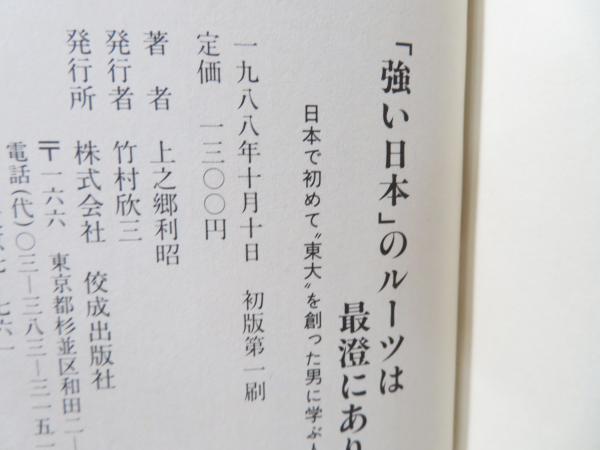 「強い日本」のルーツは
最澄にあり
日本で初めて〝東大〟を創った男に学ぶ人
一九八八年十月十日 初版第一刷
定価 一三〇〇円
著者 上之郷利昭
発行者 竹村欣三
発行所 株式会社 佼成出版社
〒一六六 東京都杉並区和田二―
電話(代)〇三―三八三―三一五一